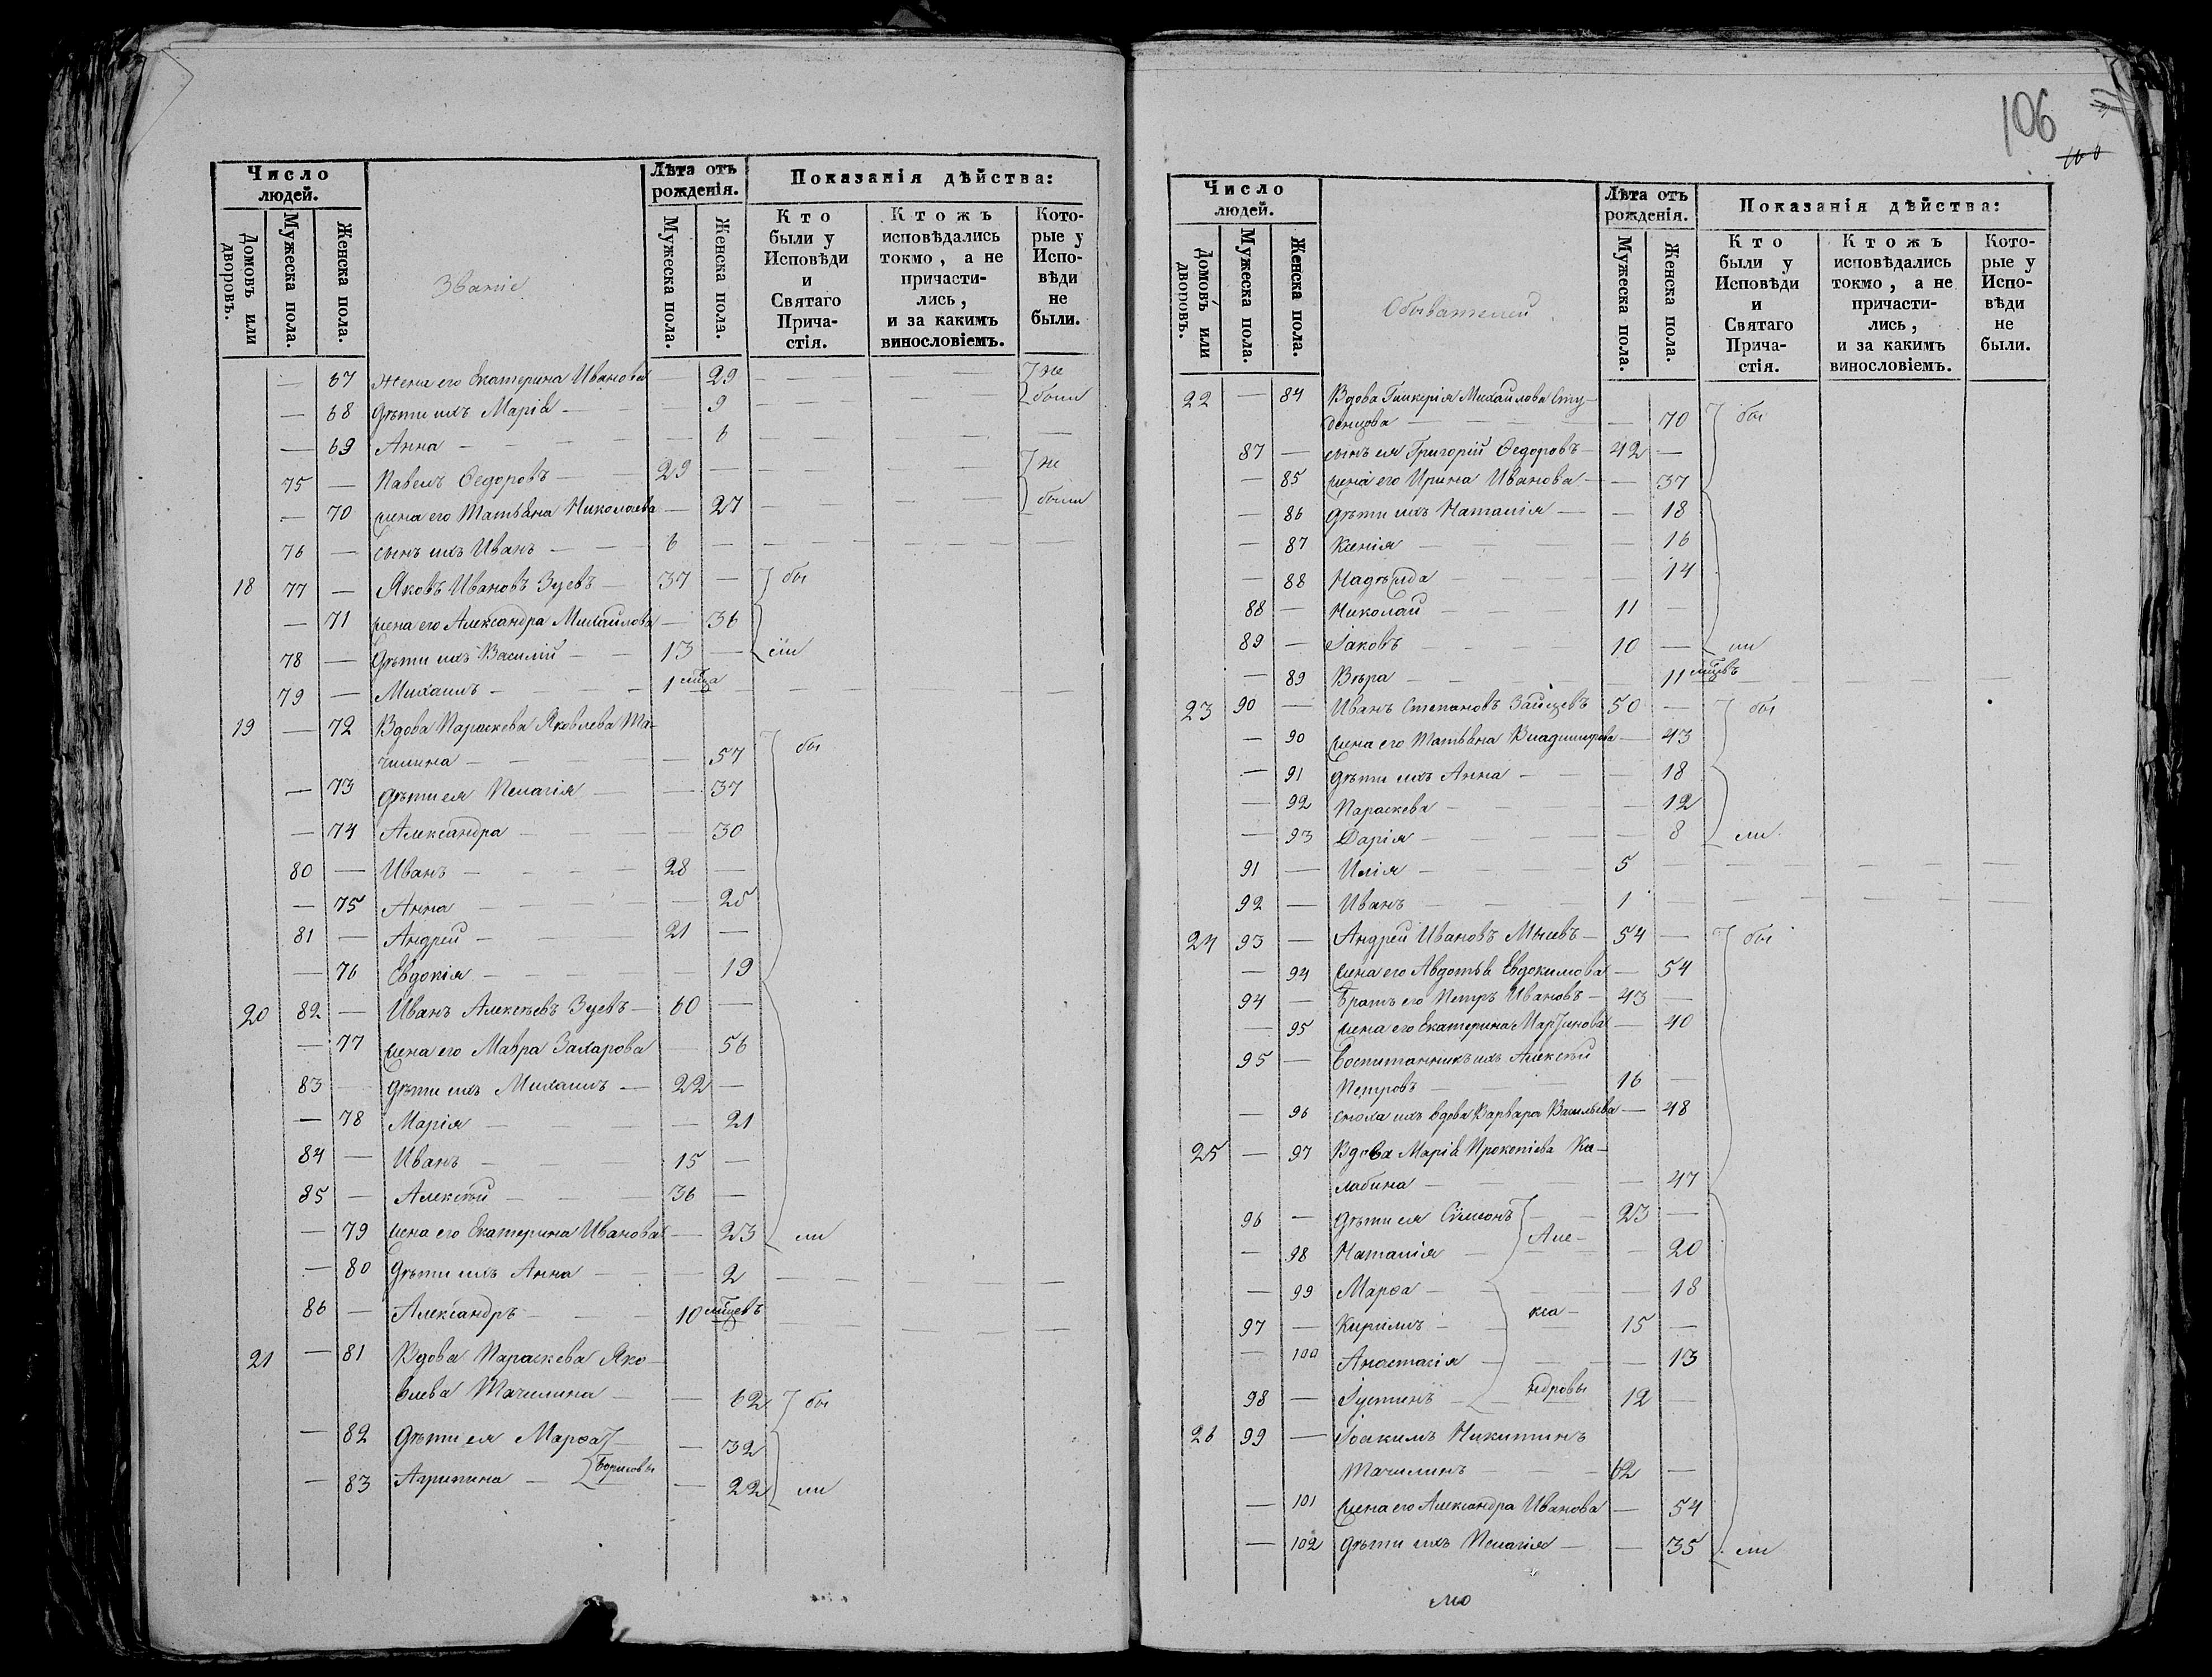 Число людей.
Домовъ или дворовъ.
Мужеска пола.
Женска пола.
Званіе
Лѣта отъ рожденія.
Мужеска пола.
Женска пола.
Показанія дѣйства:
Кто были у Исповѣди и Святаго Прича-стія.
Ктожъ исповѣдались токмо, а не причасти-лись, и за какимъ винословіемъ.
Кото-рые у Испо-вѣди не были.
— 67 жена его Екатерина Иванова — 29 — — — — — не
— 68 дѣти ихъ Марія — — 9 — — — — — были
— 69 Анна — — — — — 6 — — — — —
75 — Павелъ Ѳедоровъ — 29 — — — — — не
— 70 жена его Татьяна Николаева — 27 — — — — были
76 — сынъ ихъ Иванъ — — — 6 — — — — — — —
18 77 — Яковъ Ивановъ Зуевъ — 37 — бы
— 71 жена его Александра Михайлова — 36
78 — дѣти ихъ Василій — — 13 — ли
79 — Михаилъ — — — — 1 мѣца — — — — —
19 — 72 Вдова Параскева Яковлева Та-
чилина — — — — — 57 бы
— 73 дѣти ея Пелагія — — 37
— 74 Александра — — — — 30
80 — Иванъ — — — — 28 —
— 75 Анна — — — — 25
81 — Андрей — — — 21 —
— 76 Евдокія — — — — 19
20 82 — Иванъ Алексѣевъ Зуевъ — 60 —
— 77 жена его Мавра Захарова — 56
83 — дѣти ихъ Михаилъ — 22 —
— 78 Марія — — — — 21
84 — Иванъ — — — 15 —
85 — Алексѣй — — — 36 —
— 79 жена его Екатерина Иванова — 23 ли
— 80 дѣти ихъ Анна — — 2 — — — — — —
86 — Александръ — — — 10 мѣцевъ — — — — —
21 — 81 Вдова Параскева Яко-
влева Тачилина — — 62 бы
— 82 дѣти ея Марѳа — — 32
Борисовы
— 83 Агрипина — — 22 ли
106
100
Число людей.
Домовъ или дворовъ.
Мужеска пола.
Женска пола.
Обывателей.
Лѣта отъ рожденія.
Мужеска пола.
Женска пола.
Показанія дѣйства:
Кто были у Исповѣди и Святаго Прича-стія.
Ктожъ исповѣдались токмо, а не причасти-лись, и за какимъ винословіемъ.
Кото-рые у Испо-вѣди не были.
22 — 84 Вдова Гликерія Михайлова Сту-
денцова — — — — 70 бы
87 — сынъ ея Григорій Ѳедоровъ — 42 —
— 85 жена его Ирина Иванова — — 37
— 86 дѣти ихъ Наталія — — 18
— 87 Ксенія — — — 16
— 88 Надѣжда — — — 14
88 — Николай — — — 11 —
89 — Іаковъ — — — — 10 — ли
— 89 Вѣра — — — — 11 мѣцевъ — — — — —
23 90 — Иванъ Степановъ Зайцевъ 50 — бы
— 90 жена его Татьяна Владимірова — 43
— 91 дѣти ихъ Анна — — — 18
— 92 Параскева — — — 12
— 93 Дарія — — — — 8 ли
91 — Илія — — — — 5 — — — — — — —
92 — Иванъ — — — 1 — — — — — —
24 93 — Андрей Ивановъ — 54 — бы
— 94 жена его Авдотья Евдокимова — 54
94 — Братъ его Петръ Ивановъ — 43 —
— 95 жена его Екатерина Мартинова — 40
95 — Воспитанникъ ихъ Алексѣй
Петровъ — — — 16 —
— 96 сноха ихъ вдова Варвара Васильева — 48
25 — 97 Вдова Марія Прокопіева Ка-
лабина — — — — 47
96 — дѣти ея Сѵмеонъ — — 23 —
Але-
— 98 Наталія — — — 20
— 99 Марѳа — — — — 18
кса-
97 — Кириллъ — — — 15 —
— 100 Анастасія — — — 13
ндровы
98 — Іустинъ — — 12 —
26 99 — Іоакимъ Никитинъ
Тачилинъ — — — 62 —
— 101 жена его Александра Иванова — 54
— 102 дѣти ихъ Пелагія — — 35 ли